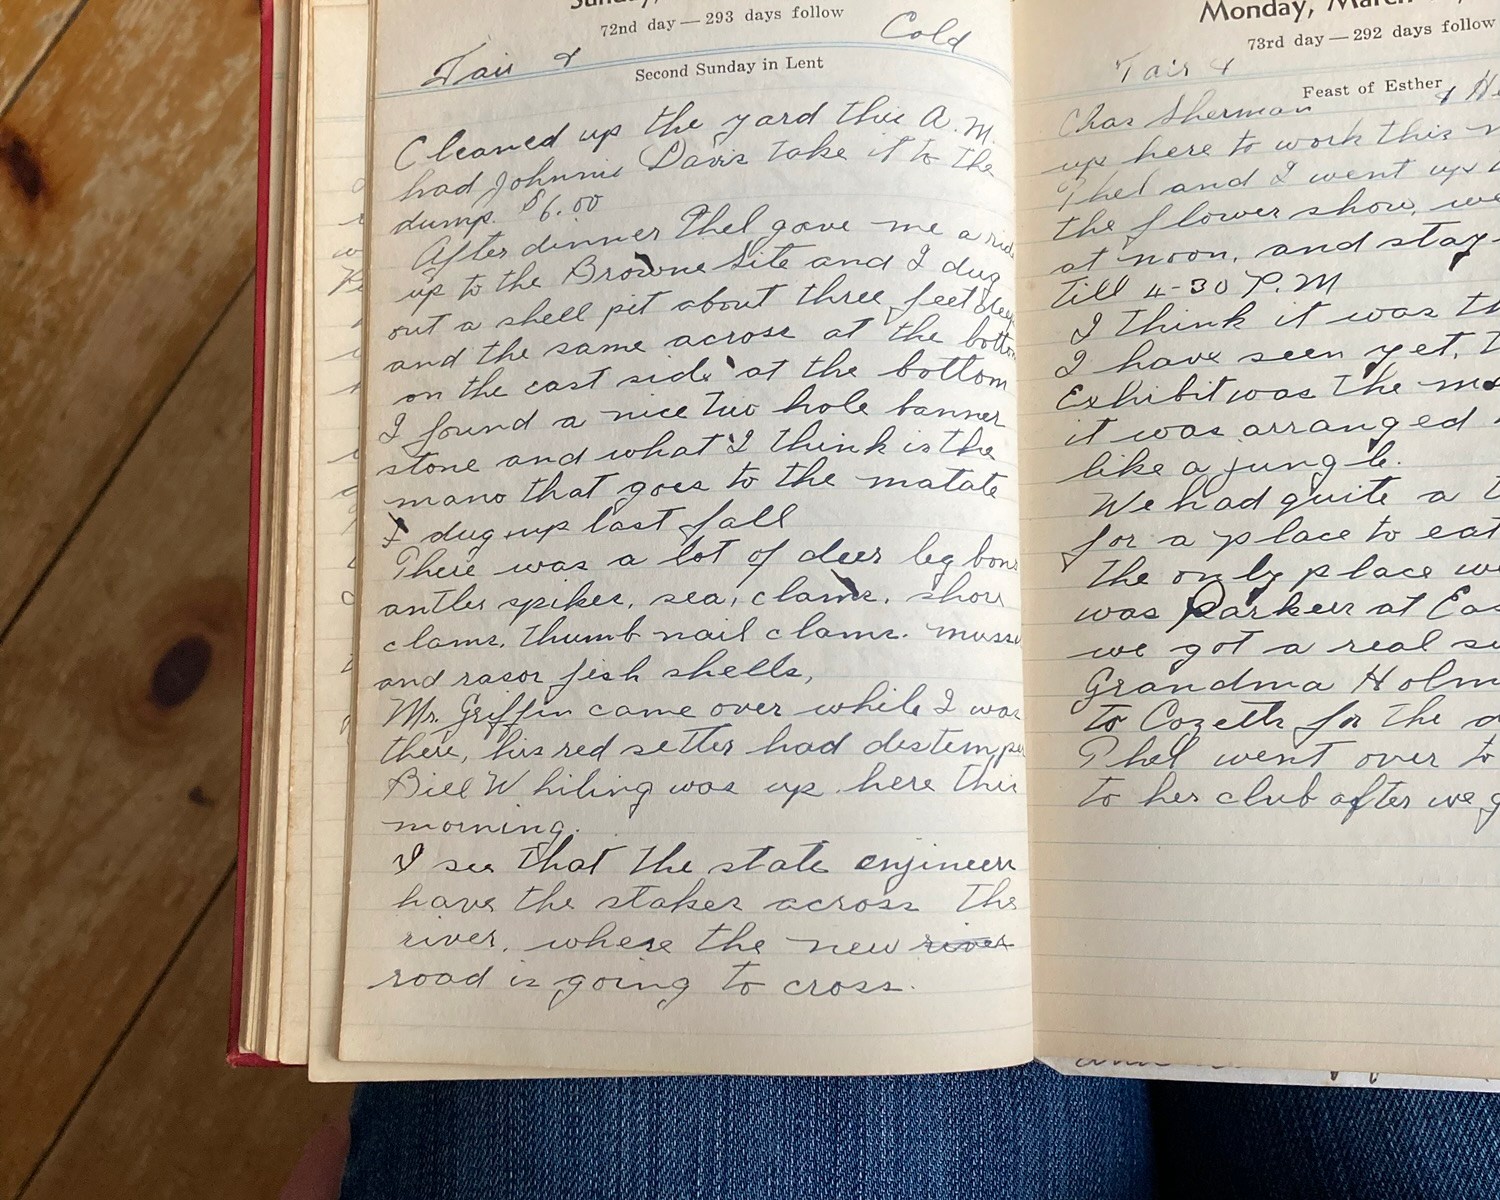 Sunday,
72nd day — 293 days follow
Fair & Cold
Second Sunday in Lent
Cleaned up the yard this A.M.
had Johnnie Davis take it to the
dump. $6.00
After dinner Phel gave me a ride
up to the Browne Site and I dug
out a shell pit about three feet deep
and the same across at the bottom
on the east side at the bottom
I found a nice two hole banner
stone and what I think is the
mano that goes to the matate
I dug up last fall
There was a lot of deer leg bone
antler spikes, sea, clams, shore
clams, thumb nail clams. musse
and rasor fish shells,
Mr. Griffin came over while I was
there, his red setter had distemper
Bill Whiling was up here this
morning.
I see that the state engineers
have the stakes across the
river, where the new river
road is going to cross.
Monday, March
73rd day — 292 days follow
Fair &
Feast of Esther
Chas Sherman & He
up here to work this
Phel and I went up
the flower show, we
at noon, and stay
till 4-30 P.M
I think it was th
I have seen yet, t
Exhibit was the mo
it was arranged
like a jungle.
We had quite a t
for a place to eat
the only place we
was Parkers at Eas
we got a real
Grandma Holm
to Cozetts for the
Phel went over to
to her club after we g